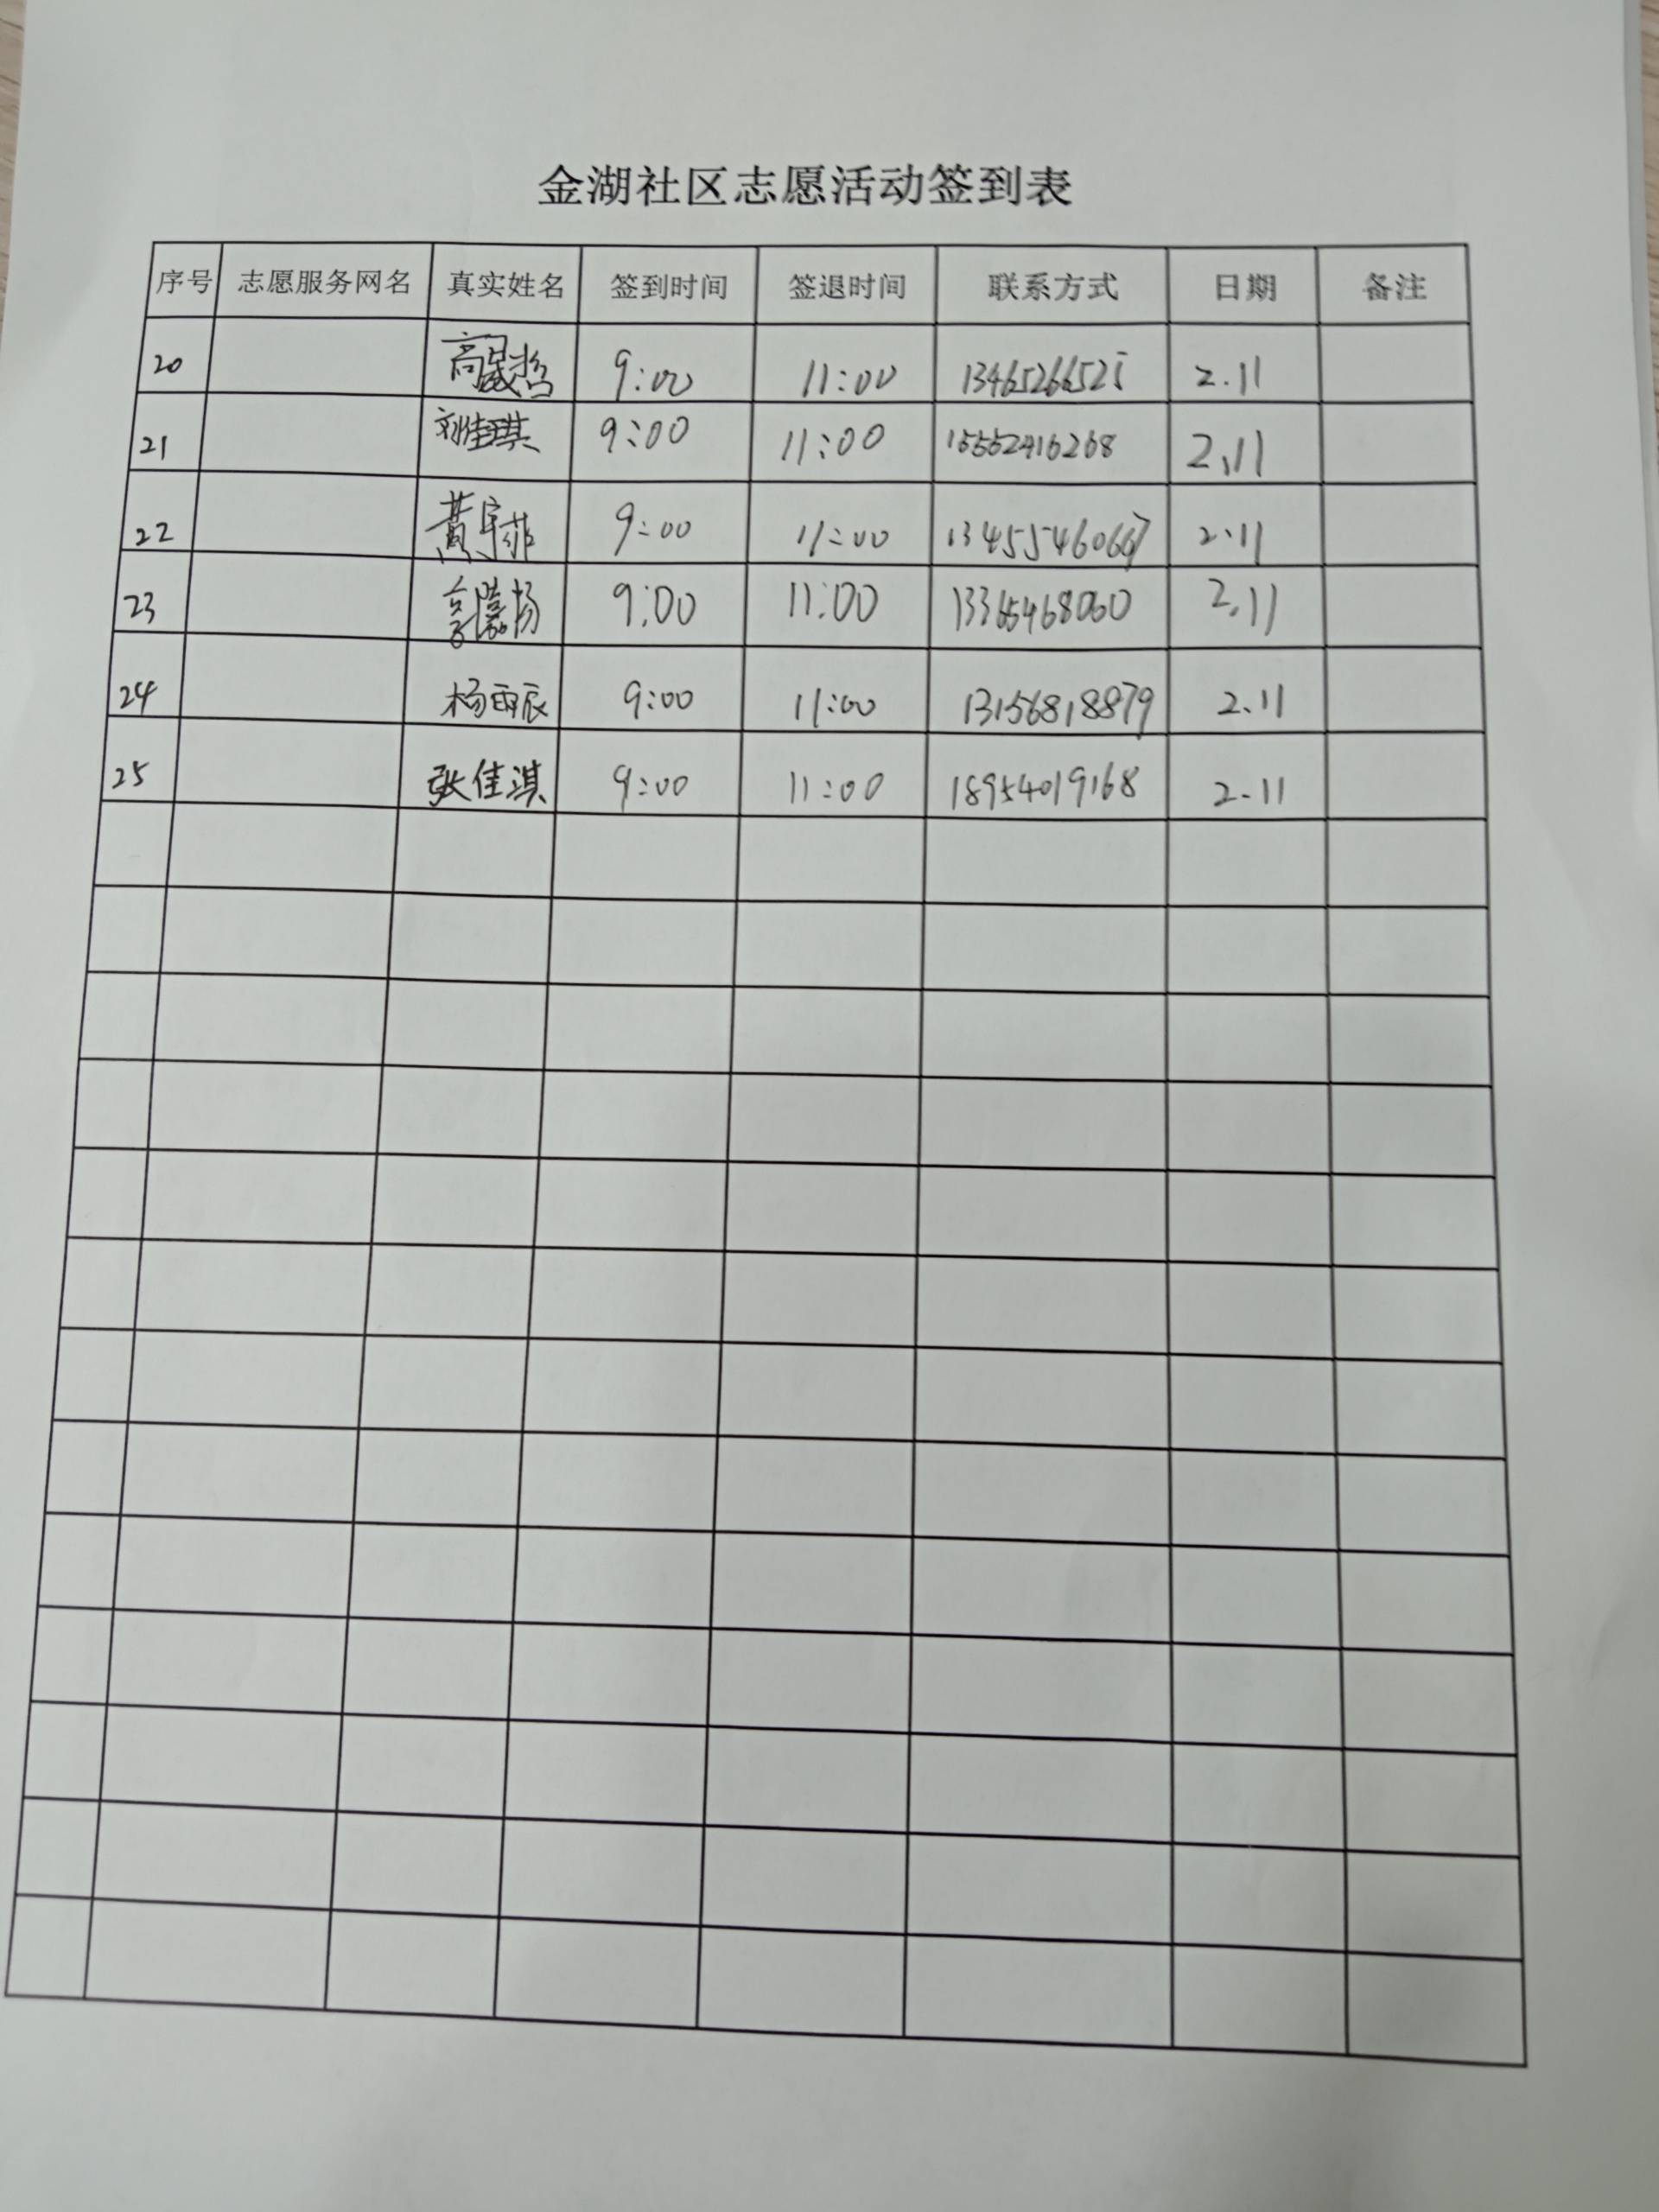 金湖社区志愿活动签到表
序号 志愿服务网名 真实姓名 签到时间 签退时间 联系方式 日期 备注
20 高晟哲 9:00 11:00 13465266525 2.11
21 刘佳琪 9:00 11:00 15552416268 2.11
22 黄宇菲 9:00 11:00 13455460667 2.11
23 9:00 11:00 13365468060 2.11
24 杨雨辰 9:00 11:00 13156818879 2.11
25 张佳淇 9:00 11:00 18954019168 2.11